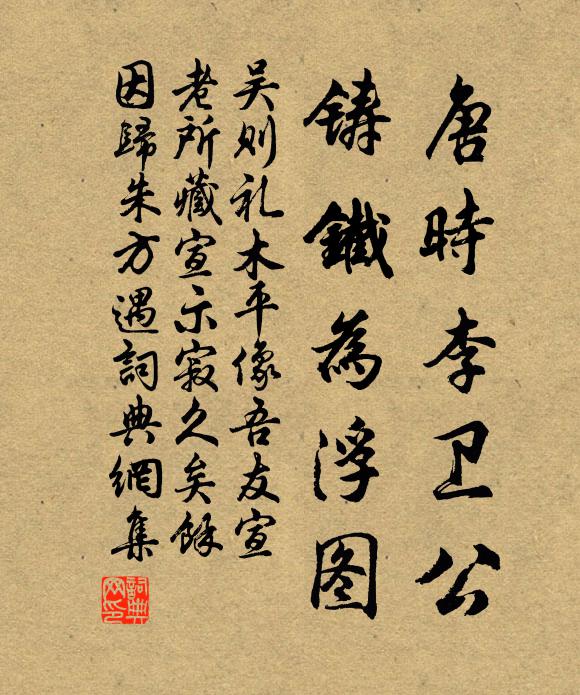 唐時李卫公
鑄鐵為浮图
吴则礼木平像吾友宣
老所藏宣示寂久矣餘
因歸朱方遇詞典網集
詞典
网印